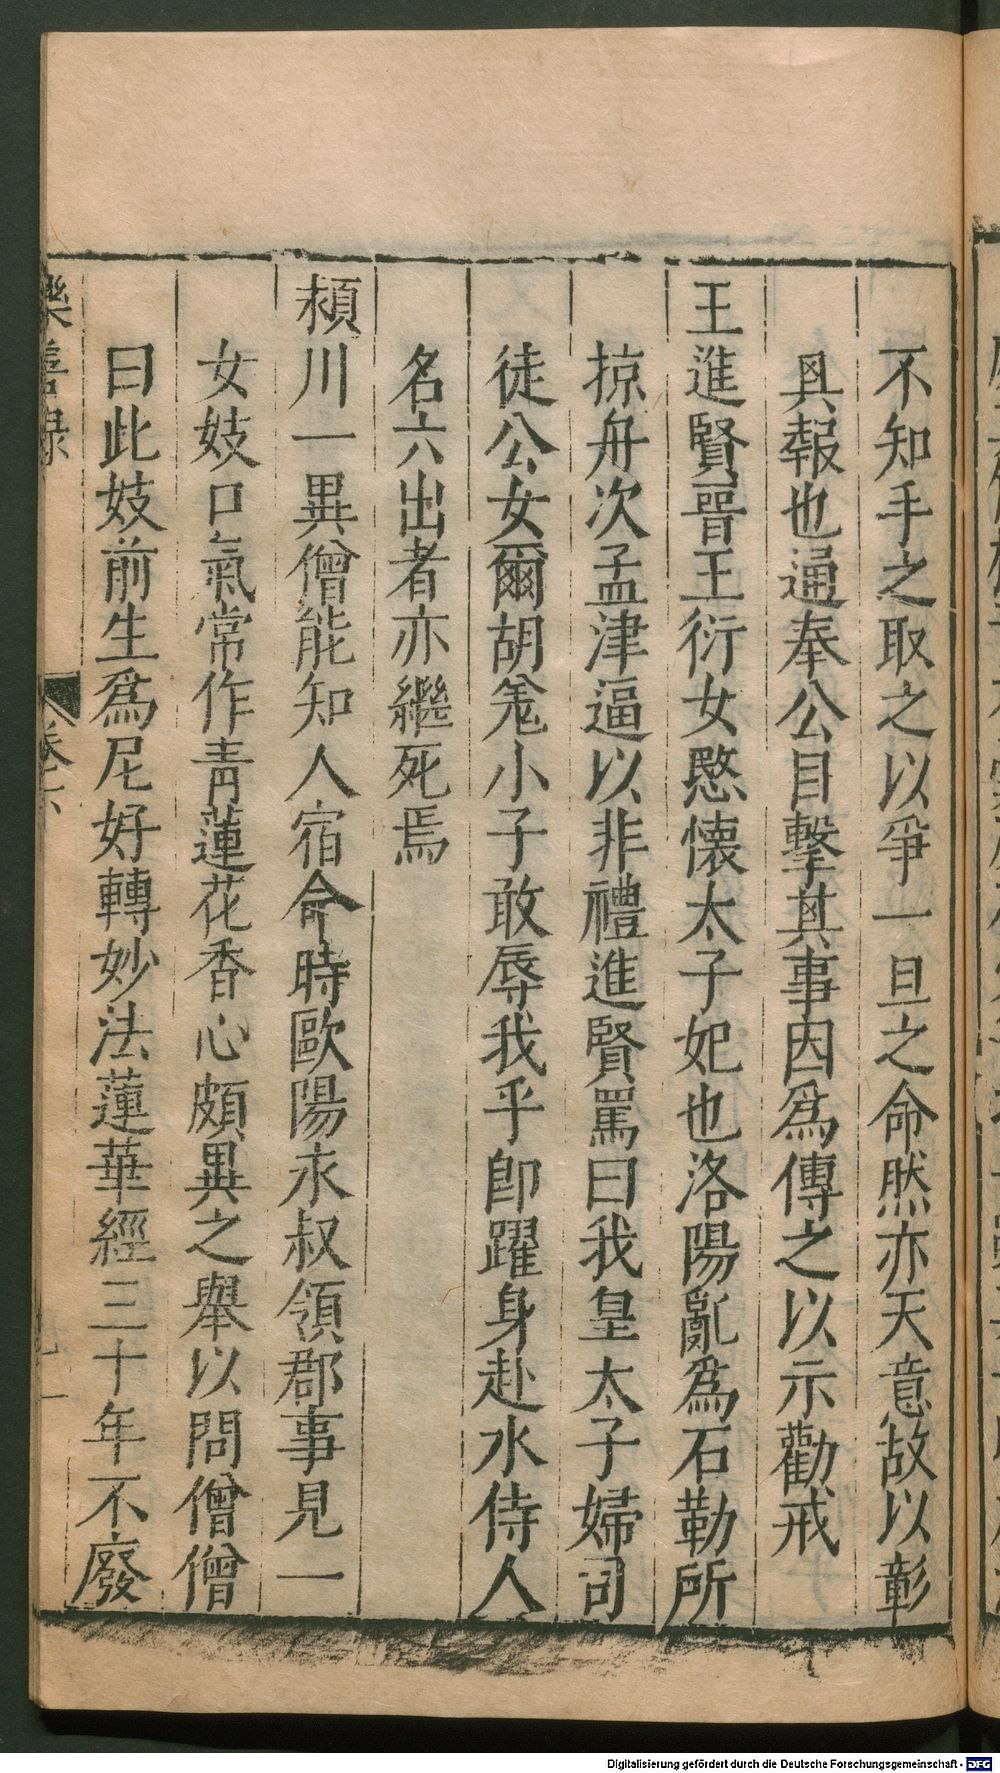 不知手之取之以爭一旦之命然亦天意故以彰
其報也通奉公目擊其事因爲傳之以示勸戒
王進賢晉王衍女愍懷太子妃也洛陽亂爲石勒所
掠舟次孟津逼以非禮進賢罵曰我皇太子婦司
徒公女爾胡羌小子敢辱我乎卽躍身赴水侍人
名六出者亦繼死焉
潁川一異僧能知人宿命時歐陽永叔領郡事見一
女妓口氣常作青蓮花香心頗異之舉以問僧僧
曰此妓前生爲尼好轉妙法蓮華經三十年不廢
樂善錄 卷六
Digitalisierung gefördert durch die Deutsche Forschungsgemeinschaft - DFG